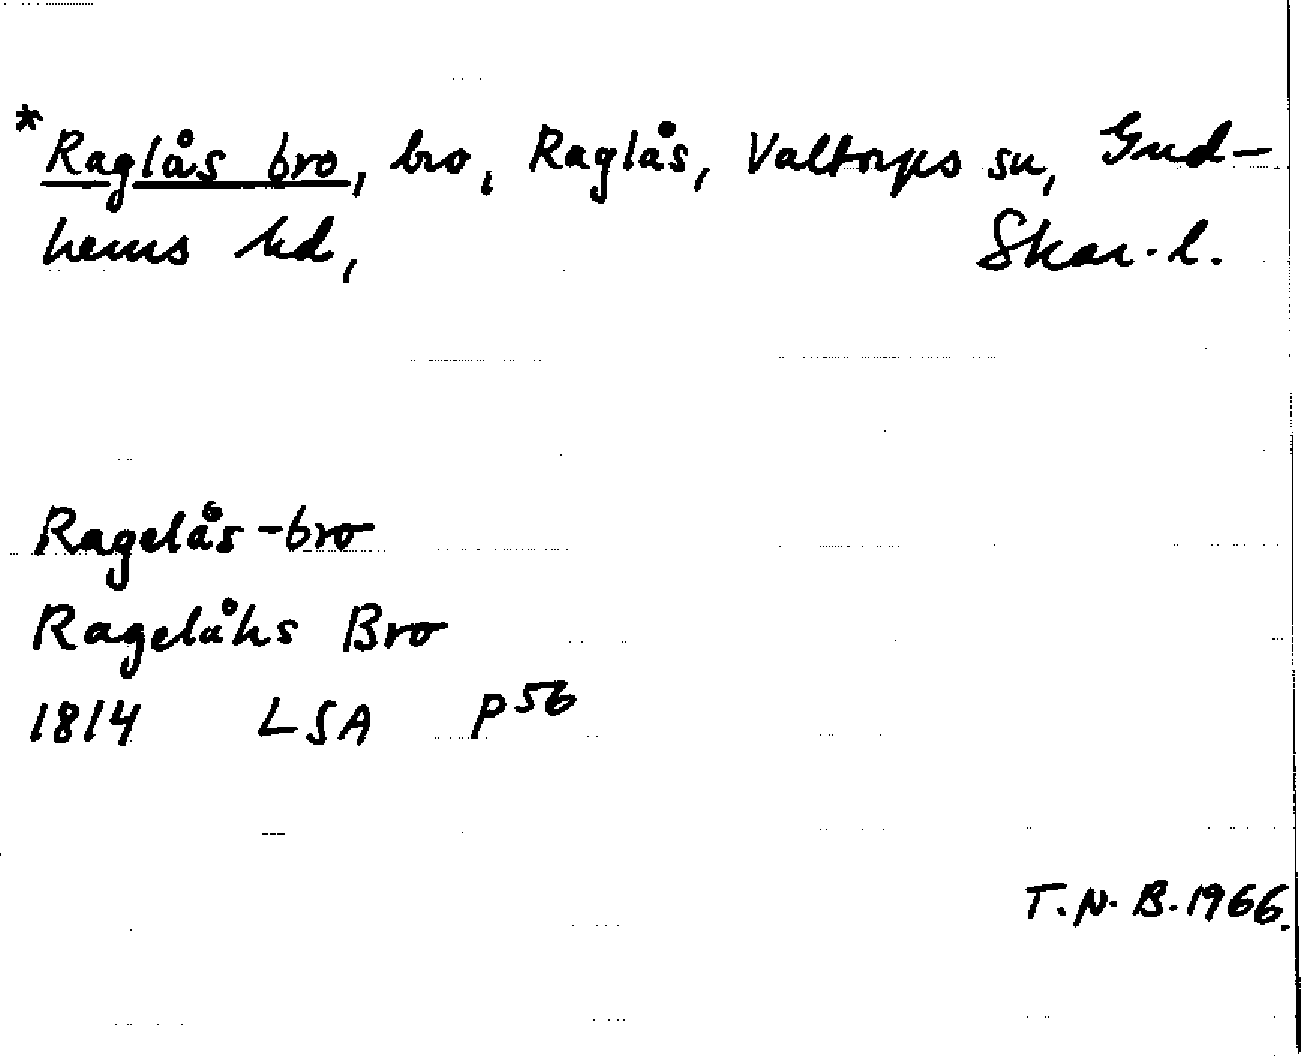 *Raglås bro, bro, Raglås, Valtorps sn, Gud-
hems hd, Skar. l.
Ragelås-bro
Ragelåhs Bro
1814 LSA P 56
T.N.B. 1966.